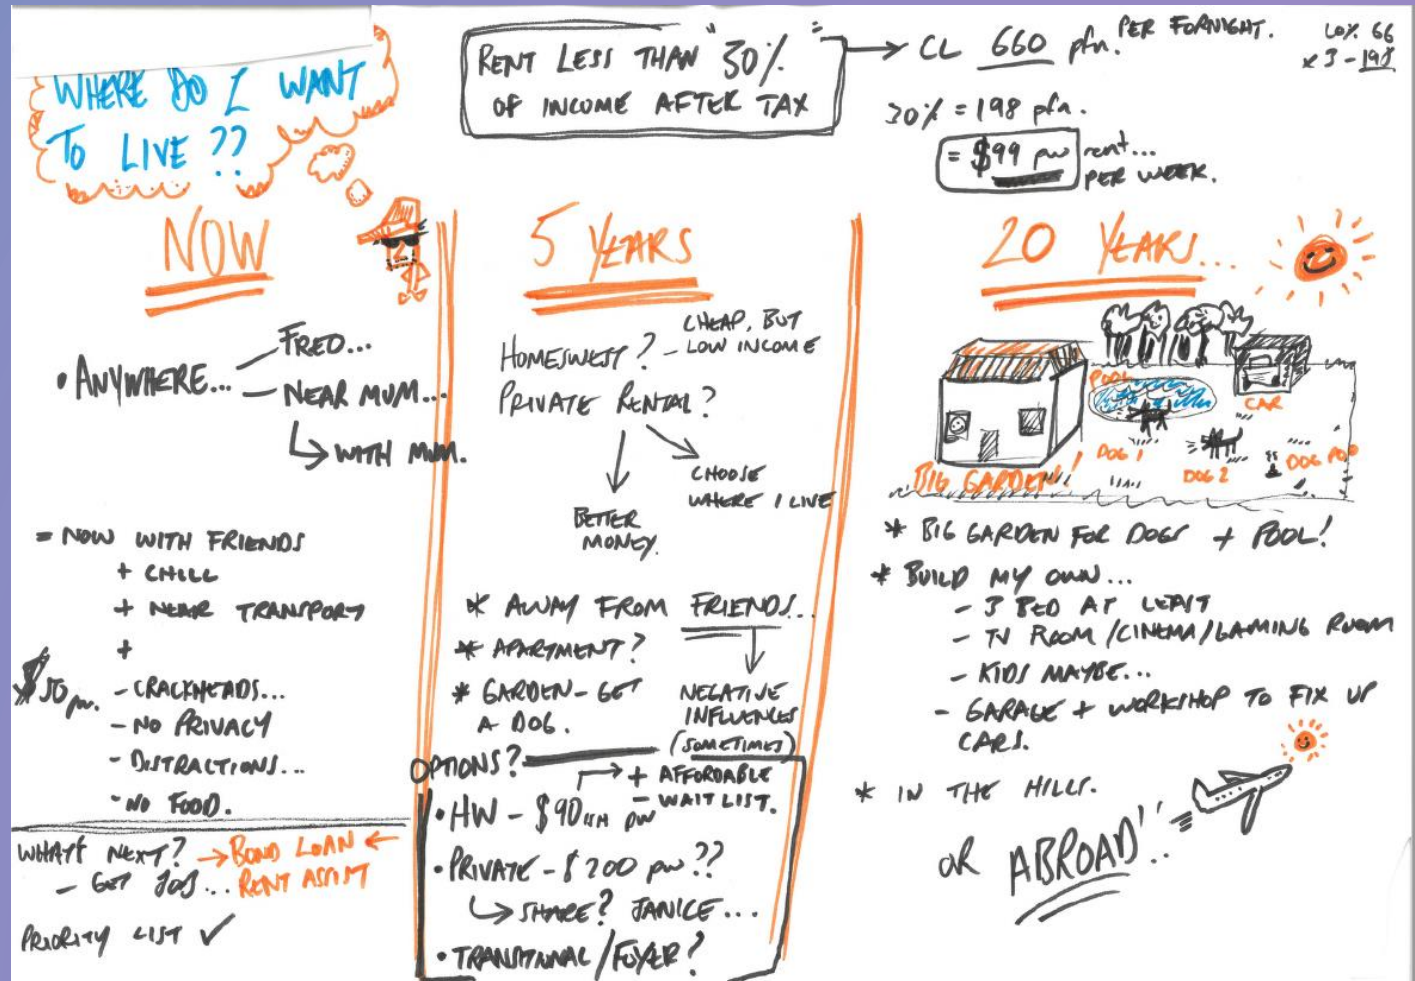 WHERE DO I WANT
TO LIVE ??
RENT LESS THAN "30%"
OF INCOME AFTER TAX
CL 660 pfn. PER FORNIGHT.
10% 66
x 3 - 198
30% = 198 pfn.
= $99 pw rent...
PER WEEK.
NOW
• ANYWHERE...
FRED...
NEAR MUM...
WITH MUM.
= NOW WITH FRIENDS
+ CHILL
+ NEAR TRANSPORT
+
$50 pw.
- CRACKHEADS...
- NO PRIVACY
- DISTRACTIONS...
- NO FOOD.
WHAT'S NEXT? → BOND LOAN ←
- GET JOB... RENT ASSIST
PRIORITY LIST ✓
5 YEARS
HOMESWEST? - CHEAP, BUT
LOW INCOME
PRIVATE RENTAL?
CHOOSE
WHERE I LIVE
BETTER
MONEY.
* AWAY FROM FRIENDS...
* APARTMENT?
* GARDEN - GET
A DOG.
NEGATIVE
INFLUENCES
(SOMETIMES)
OPTIONS?
+ AFFORDABLE
- WAIT LIST.
• HW - $90 pw
• PRIVATE - $200 pw??
SHARE? JANICE...
• TRANSITIONAL / FOYER?
20 YEARS...
POOL
CAR
DOG 1
DOG 2
DOG POO
BIG GARDEN!
* BIG GARDEN FOR DOGS + POOL!
* BUILD MY OWN...
- 3 BED AT LEAST
- TV ROOM/CINEMA/GAMING ROOM
- KIDS MAYBE...
- GARAGE + WORKSHOP TO FIX UP
CARS.
* IN THE HILLS.
OR ABROAD!..